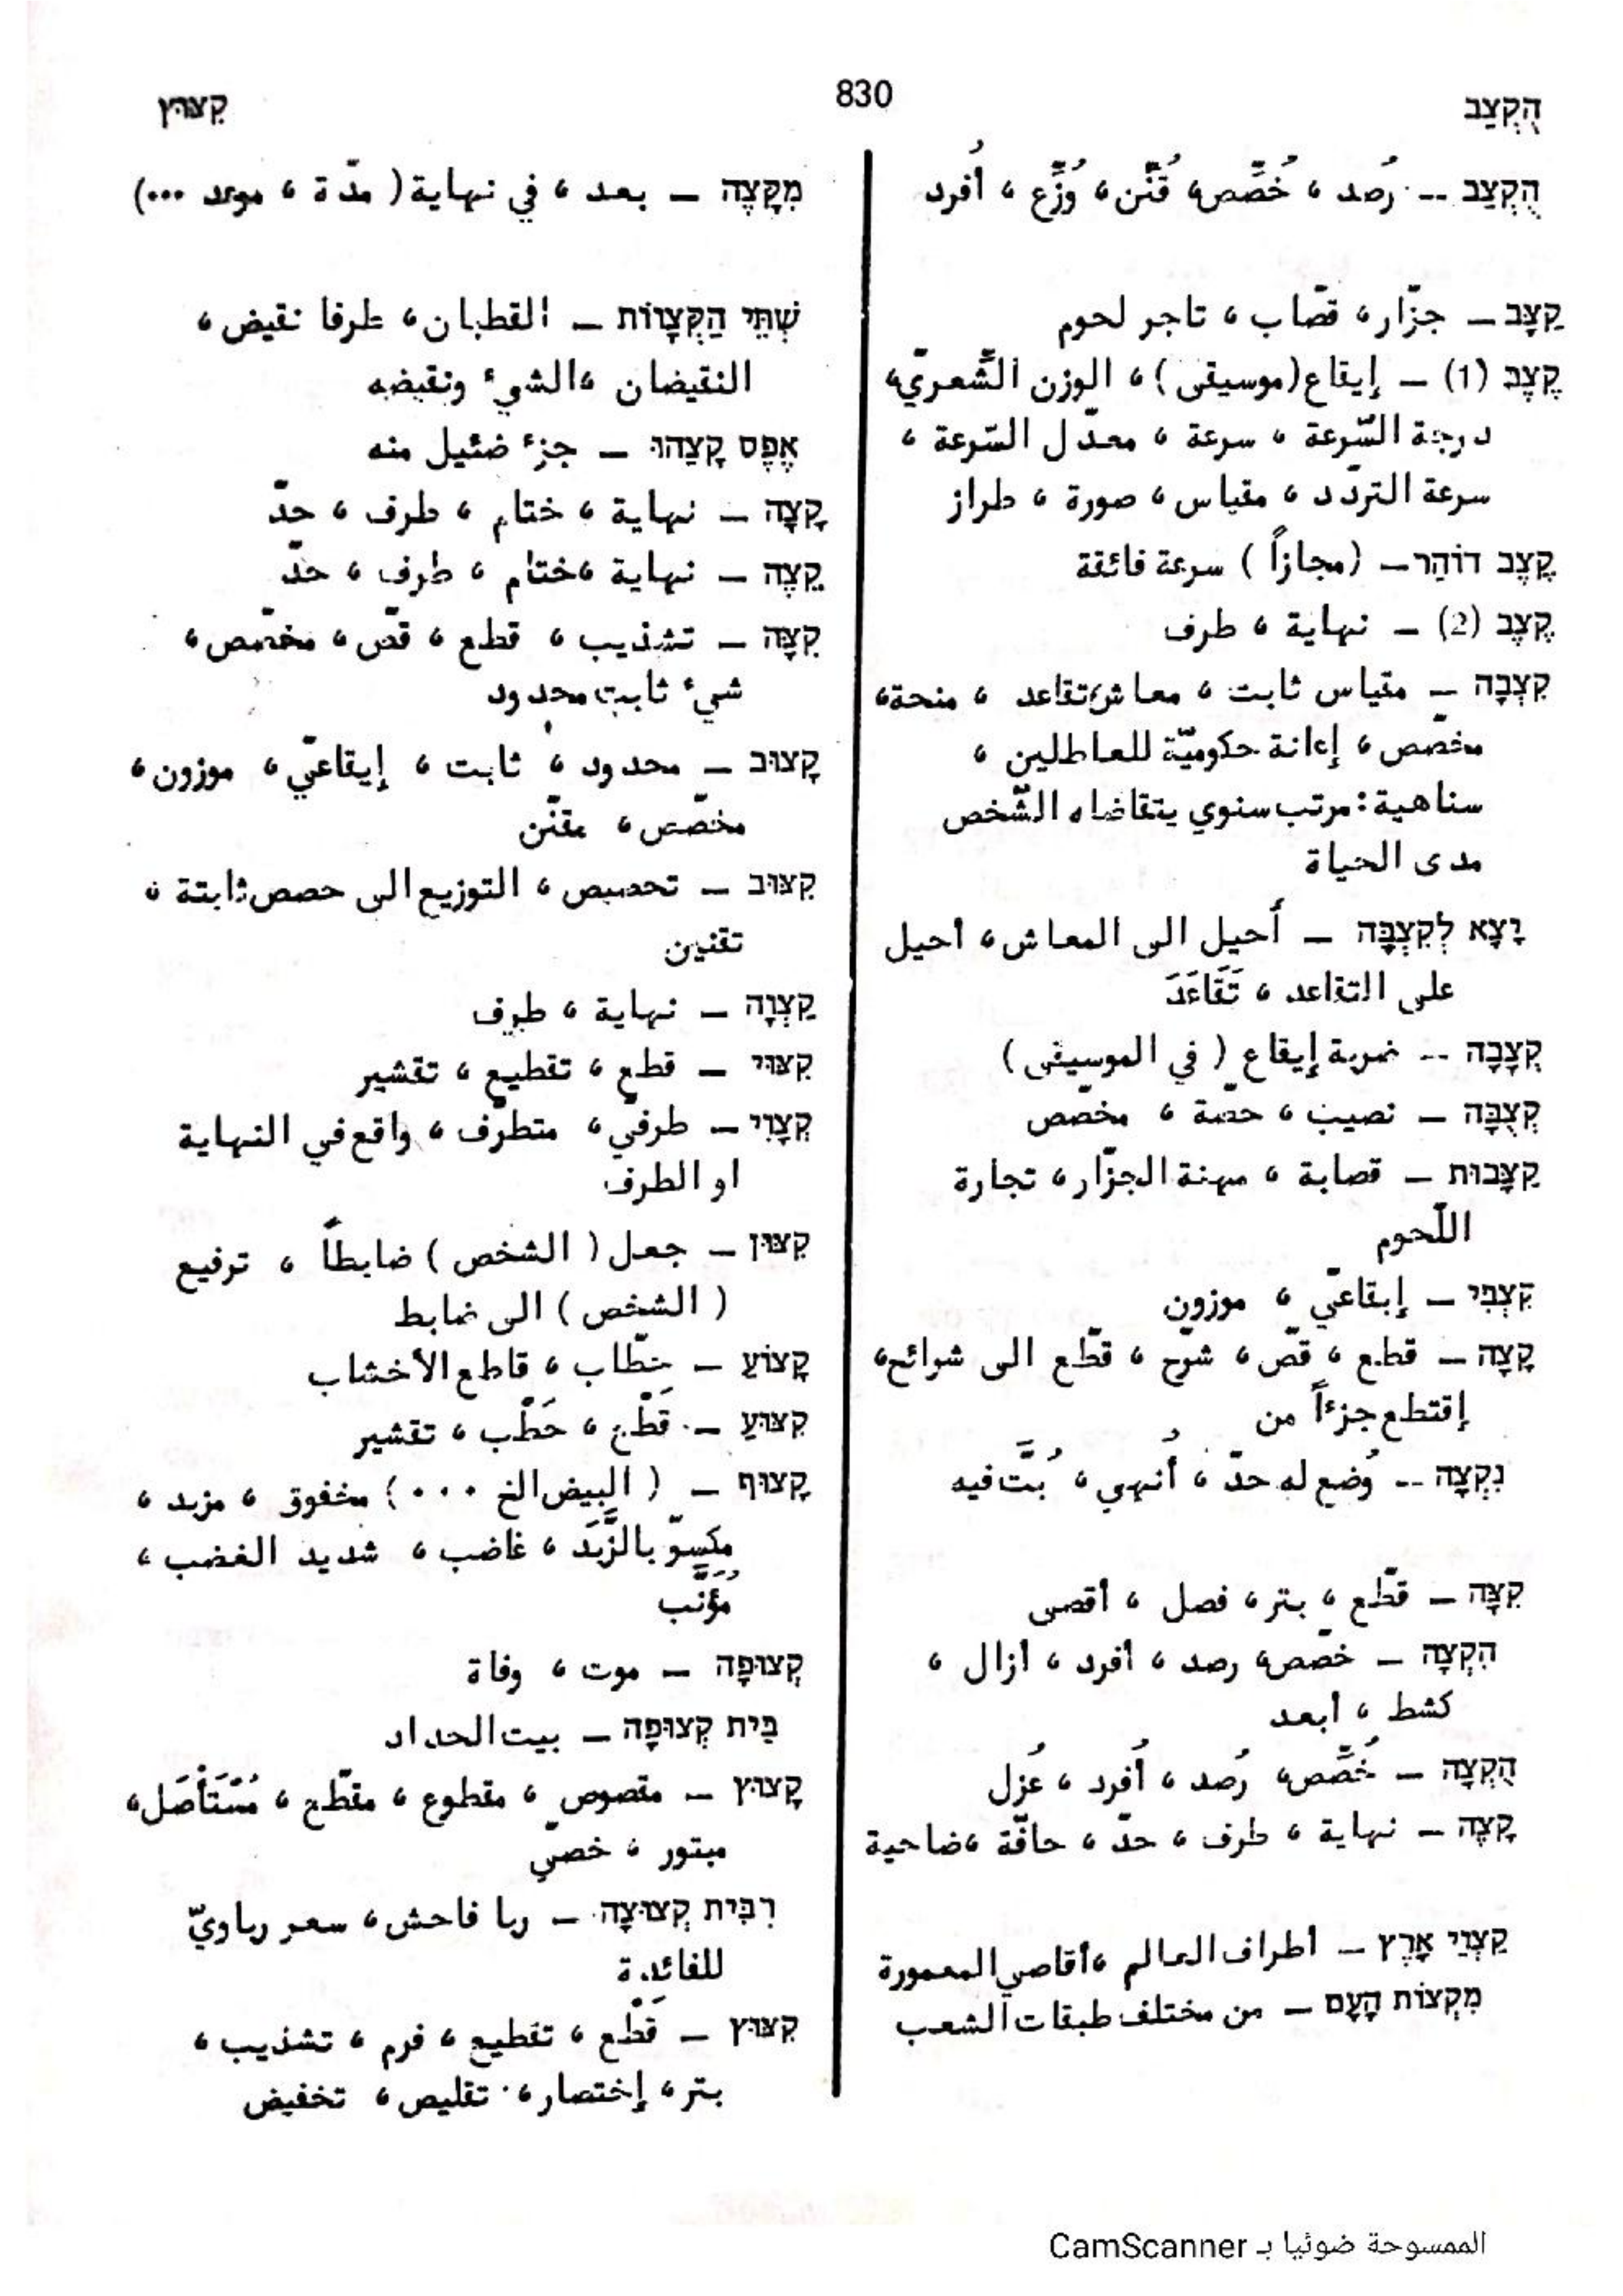 הֻקְצַב
830
קִצּוּץ
הֻקְצַב -- رُصد ، خُصِّص، قُنِّن، وُزِّع ، أُفرد
קַצָּב – جزّار، قصّاب ، تاجر لحوم
קֶצֶב (1) – إيقاع(موسيقى) ، الوزن الشّعريّ،
درجة السّرعة ، سرعة ، معدّل السّرعة ،
سرعة التردّد ، مقياس ، صورة ، طراز
קֶצֶב דּוֹהֵר – (مجازاً ) سرعة فائقة
קֶצֶב (2) – نهاية ، طرف
קִצְבָה – مقياس ثابت ، معاش،تقاعد ، منحة،
مخصّص ، إعانة حكوميّة للعاطلين ،
سناهية: مرتب سنوي يتقاضاه الشّخص
مدى الحياة
יָצָא לְקִצְבָּה – أُحيل الى المعاش ، أحيل
على التقاعد ، تَقَاعَدَ
קְצָבָה -- ضربة إيقاع ( في الموسيقى )
קְצֻבָּה – نصيب ، حصّة ، مخصّص
קַצָּבוּת – قصابة ، مهنة الجزّار ، تجارة
اللّحوم
קִצְבִּי – إيقاعيّ ، موزون
קָצָה – قطع ، قصّ ، شرّح ، قطّع الى شرائح،
إقتطع جزءاً من
נִקְצָה -- وُضع له حدّ ، أُنهي ، بُتَّ فيه
קִצָּה – قطّع ، بتر ، فصل ، أقصى
הִקְצָה – خصّص، رصد ، أفرد ، أزال ،
كشط ، أبعد
הֻקְצָה – خُصِّص، رُصد ، أُفرد ، عُزل
קָצֶה – نهاية ، طرف ، حدّ ، حافّة ،ضاحية
קַצְוֵי אָרֶץ – أطراف العالم ،أقاصي المعمورة
מִקְצוֹת הָעָם – من مختلف طبقات الشعب
מִקָּצֶה – بعد ، في نهاية ( مدّة ، موعد ...)
שְׁתֵּי הַקְּצָווֹת – القطبان ، طرفا نقيض ،
النقيضان ،الشيء ونقيضه
אֶפֶס קָצֵהוּ – جزء ضئيل منه
קָצָה – نهاية ، ختام ، طرف ، حدّ
קֵצֶה – نهاية ،ختام ، طرف ، حدّ
קִצָּה – تشذيب ، قطع ، قصّ ، مخصّص ،
شيء ثابت محدود
קָצוּב – محدود ، ثابت ، إيقاعيّ ، موزون ،
مخصّص ، مقنّن
קִצּוּב – تحصيص ، التوزيع الى حصص ثابتة ،
تقنين
קַצְוָה – نهاية ، طرف
קִצּוּי – قطع ، تقطيع ، تقشير
קְצָוִי – طرفيّ ، متطرّف ، واقع في النهاية
او الطرف
קִצּוּן – جعل ( الشخص ) ضابطاً ، ترفيع
( الشخص ) الى ضابط
קָצוֹעַ – حطّاب ، قاطع الأخشاب
קִצּוּעַ – قَطْع ، حَطْب ، تقشير
קָצוּף – ( البيض الخ ...) مخفوق ، مزبد ،
مكسوّ بالزَّبَد ، غاضب ، شديد الغضب ،
مُؤَنَّب
קְצוּפָה – موت ، وفاة
בֵּית קְצוּפָה – بيت الحداد
קָצוּץ – مقصوص ، مقطوع ، مقطّع ، مُسْتَأْصَل،
مبتور ، خصيّ
רִבִּית קְצוּצָה – ربا فاحش ، سعر رباويّ
للفائدة
קִצּוּץ – قَطْع ، تقطيع ، فرم ، تشذيب ،
بتر ، إختصار ، تقليص ، تخفيض
الممسوحة ضوئيا بـ CamScanner